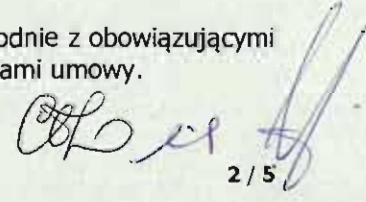 odnie z obowiązującymi
ami umowy.
2 / 5